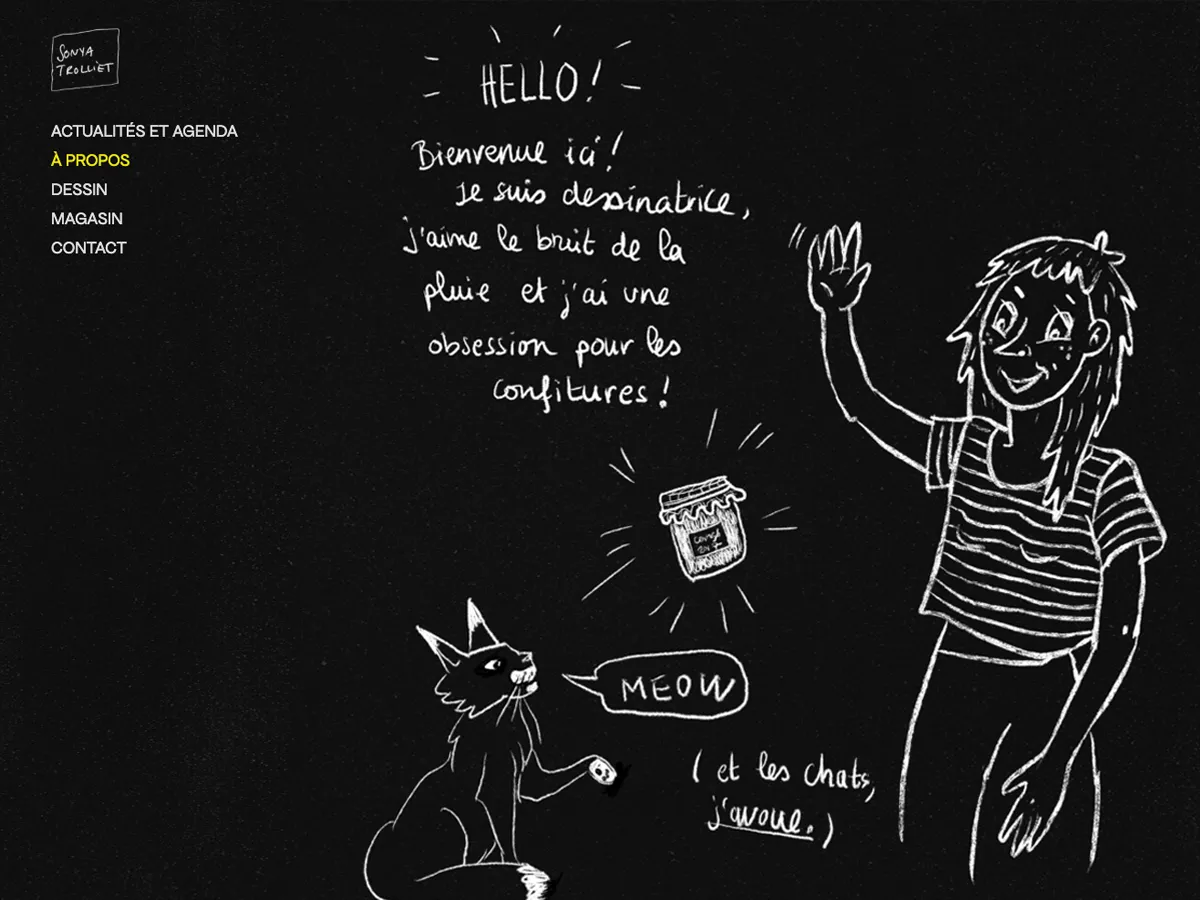 SONYA
TROLLIET
ACTUALITÉS ET AGENDA
À PROPOS
DESSIN
MAGASIN
CONTACT
HELLO!
Bienvenue ici!
Je suis dessinatrice,
j'aime le bruit de la
pluie et j'ai une
obsession pour les
confitures!
MEOW
(et les chats,
j'avoue.)